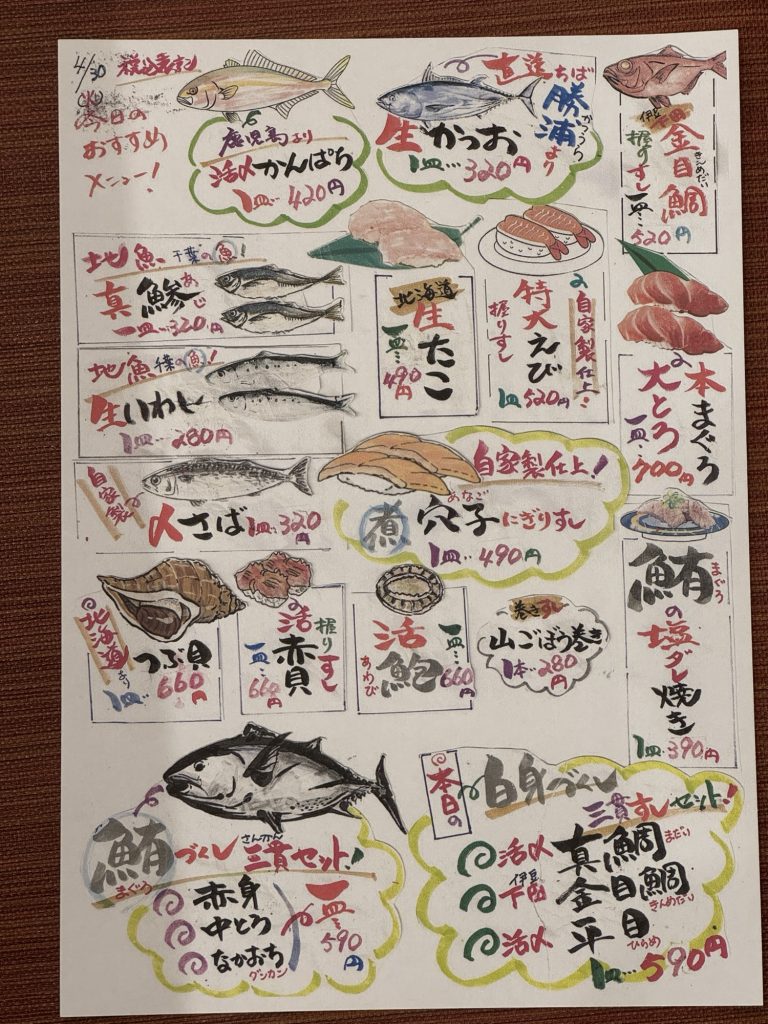 4/30
(火)
今日の
おすすめ
メニュー!
鹿児島より
活〆かんぱち
1皿…420円
直送ちば
勝浦より
かつうら
生かつお
1皿…320円
伊豆
金目鯛
きんめだい
握りずし
一皿…520円
地魚 千葉の魚!
真鯵
あじ
一皿…320円
北海道
生たこ
一皿…490円
自家製仕上!
特大えび
握りずし
1皿520円
本まぐろ
大とろ
一皿…700円
地魚 千葉の魚!
生いわし
1皿…280円
自家製
〆さば 1皿…320円
自家製仕上!
煮穴子にぎりずし
あなご
1皿…490円
鮪の塩ダレ焼き
まぐろ
1皿…390円
北海道より
つぶ貝
1皿…660円
握りずし
活赤貝
一皿…660円
活鮑
あわび
一皿…660円
巻きずし
山ごぼう巻き
1本…280円
鮪づくし三貫セット!
まぐろ
さんかん
赤身
中とろ
なかおち
グンカン
一皿…590円
本日の
白身づくし
三貫ずしセット!
活〆真鯛
まだい
伊豆下田金目鯛
きんめだい
活〆平目
ひらめ
1皿…590円